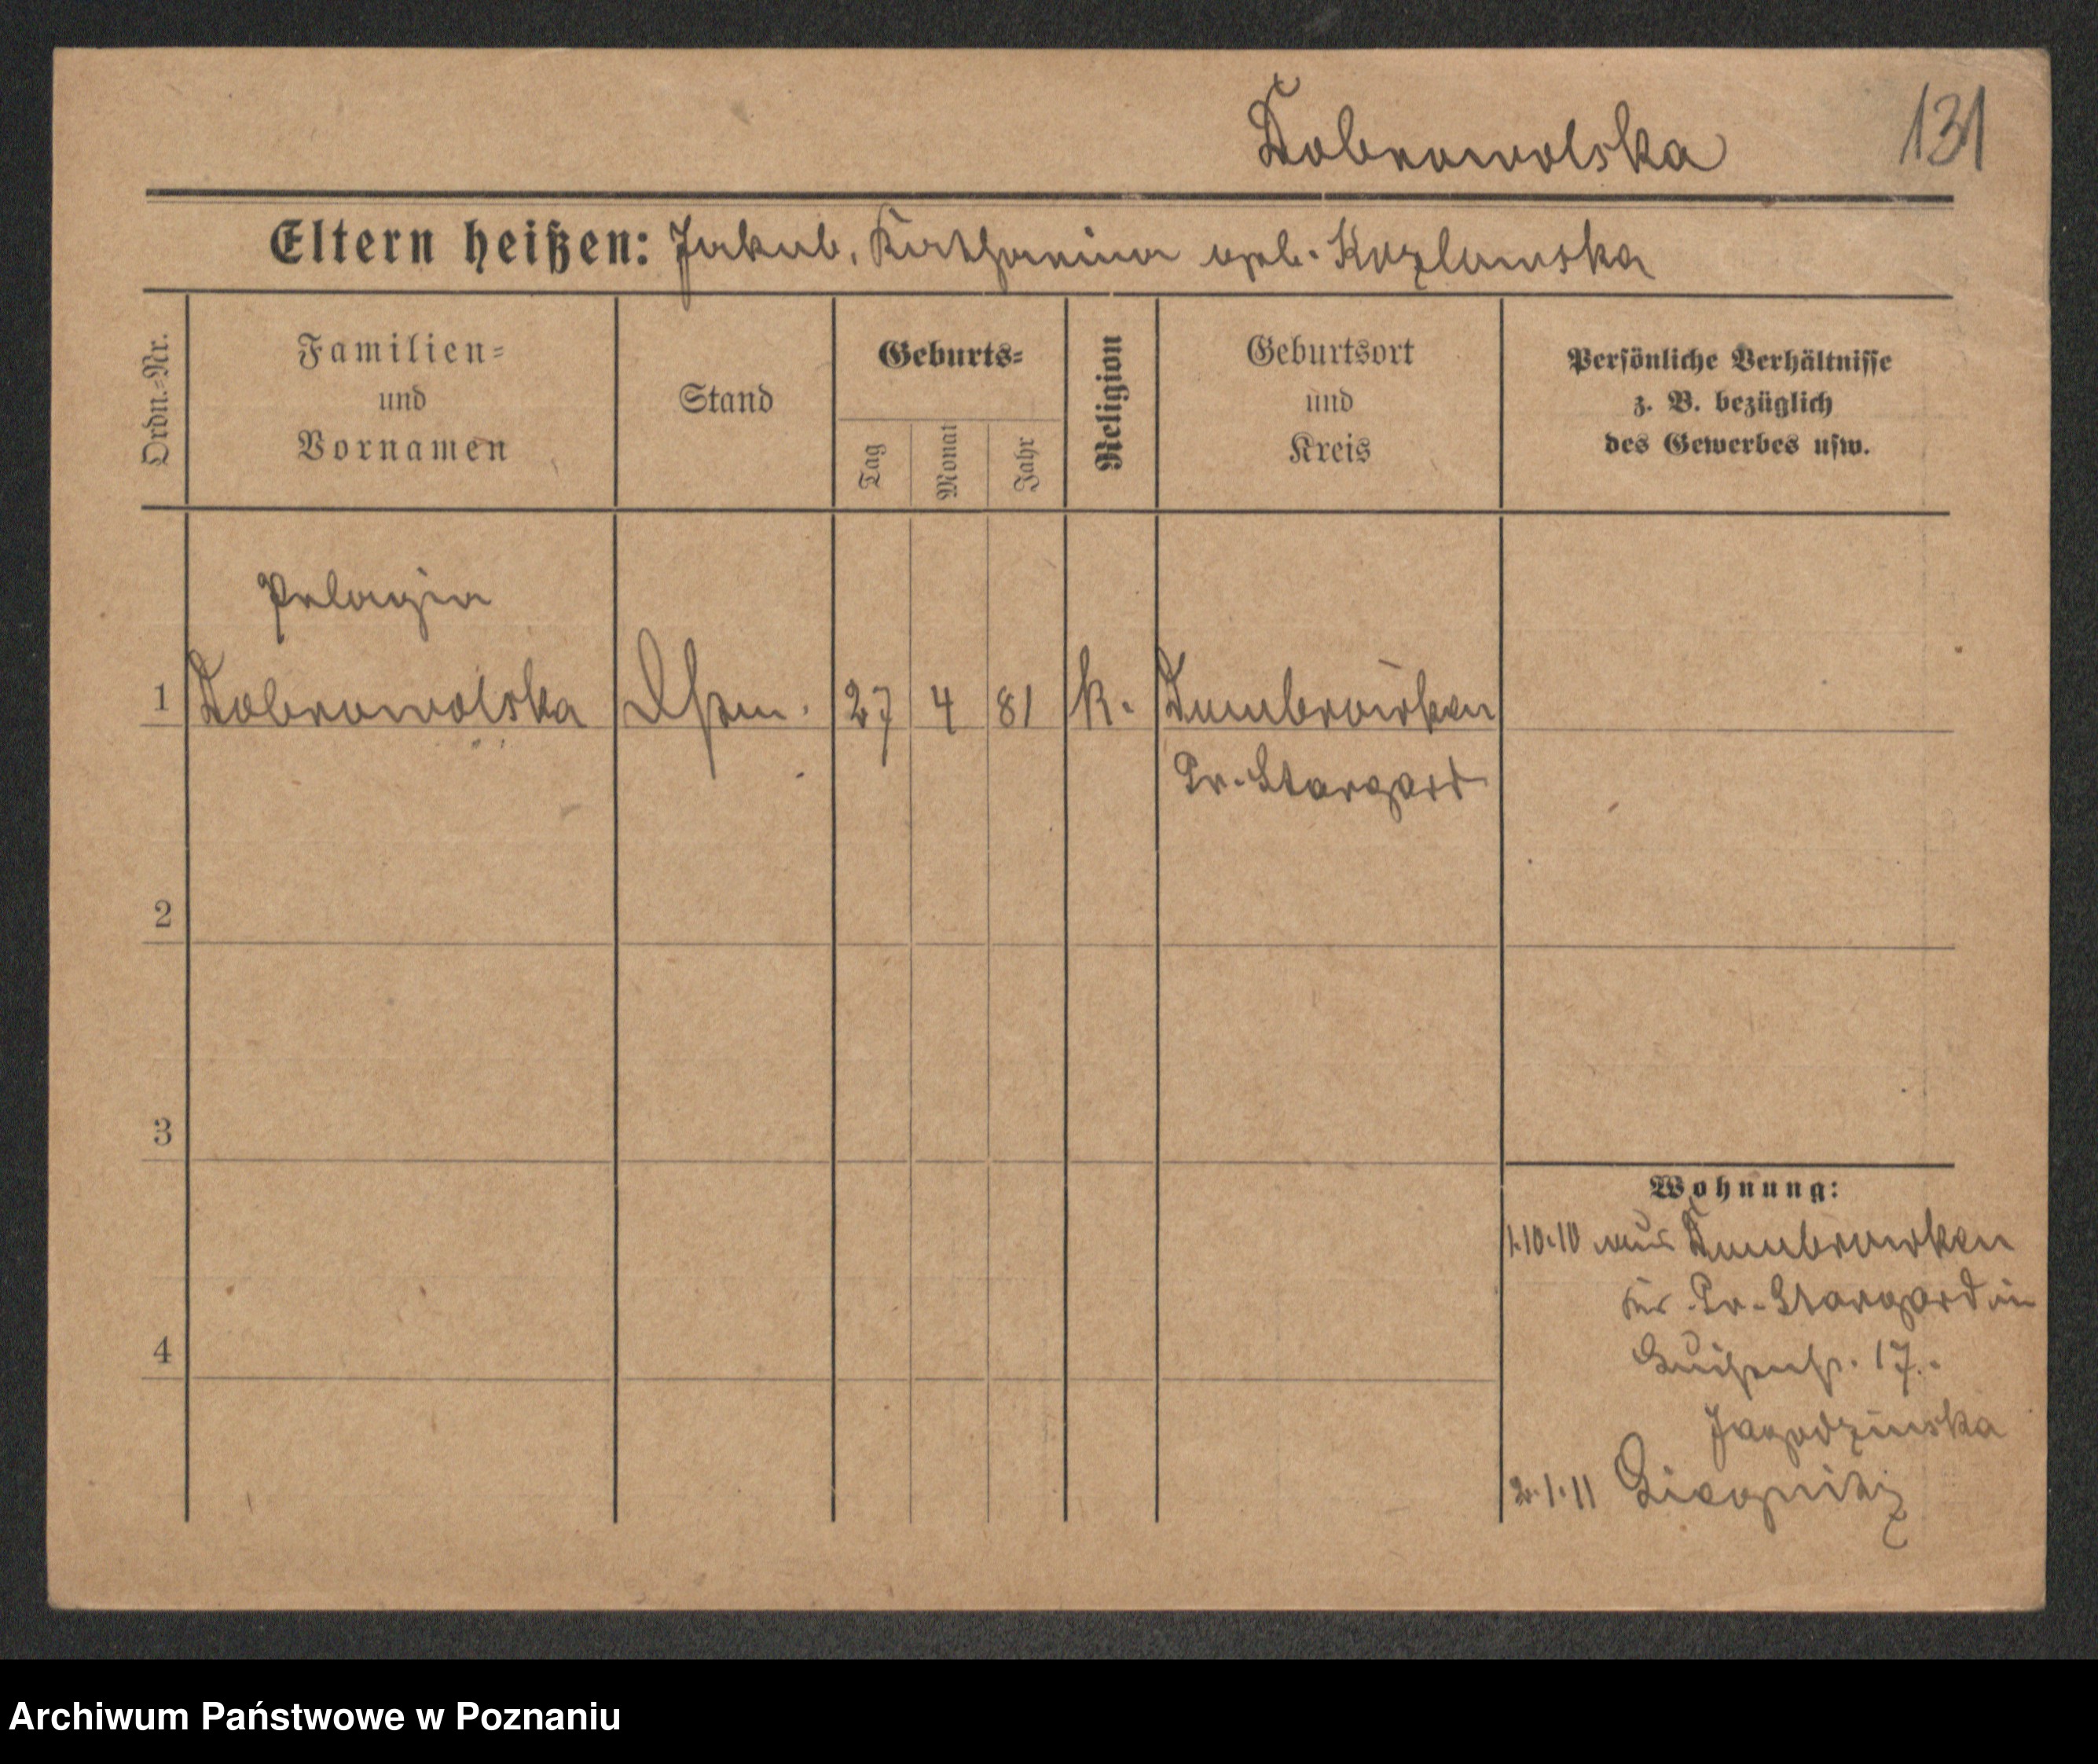 Dobrowolska 131
Eltern heißen: Jakub, Katharina geb. Kozlowska
Ordn.-Nr.
Familien-
und
Vornamen
Stand
Geburts-
Tag
Monat
Jahr
Religion
Geburtsort
und
Kreis
Persönliche Verhältnisse
z. B. bezüglich
des Gewerbes usw.
Pelagia
1 Dobrowolska 27 4 81 k. Dumbrowken
Pr. Stargard
2
3
4
Wohnung:
1.10.10 aus Dumbrowken
Pr. Stargard in
Luisenstr. 17.
Jagodzinska
2.1.11
Archiwum Państwowe w Poznaniu